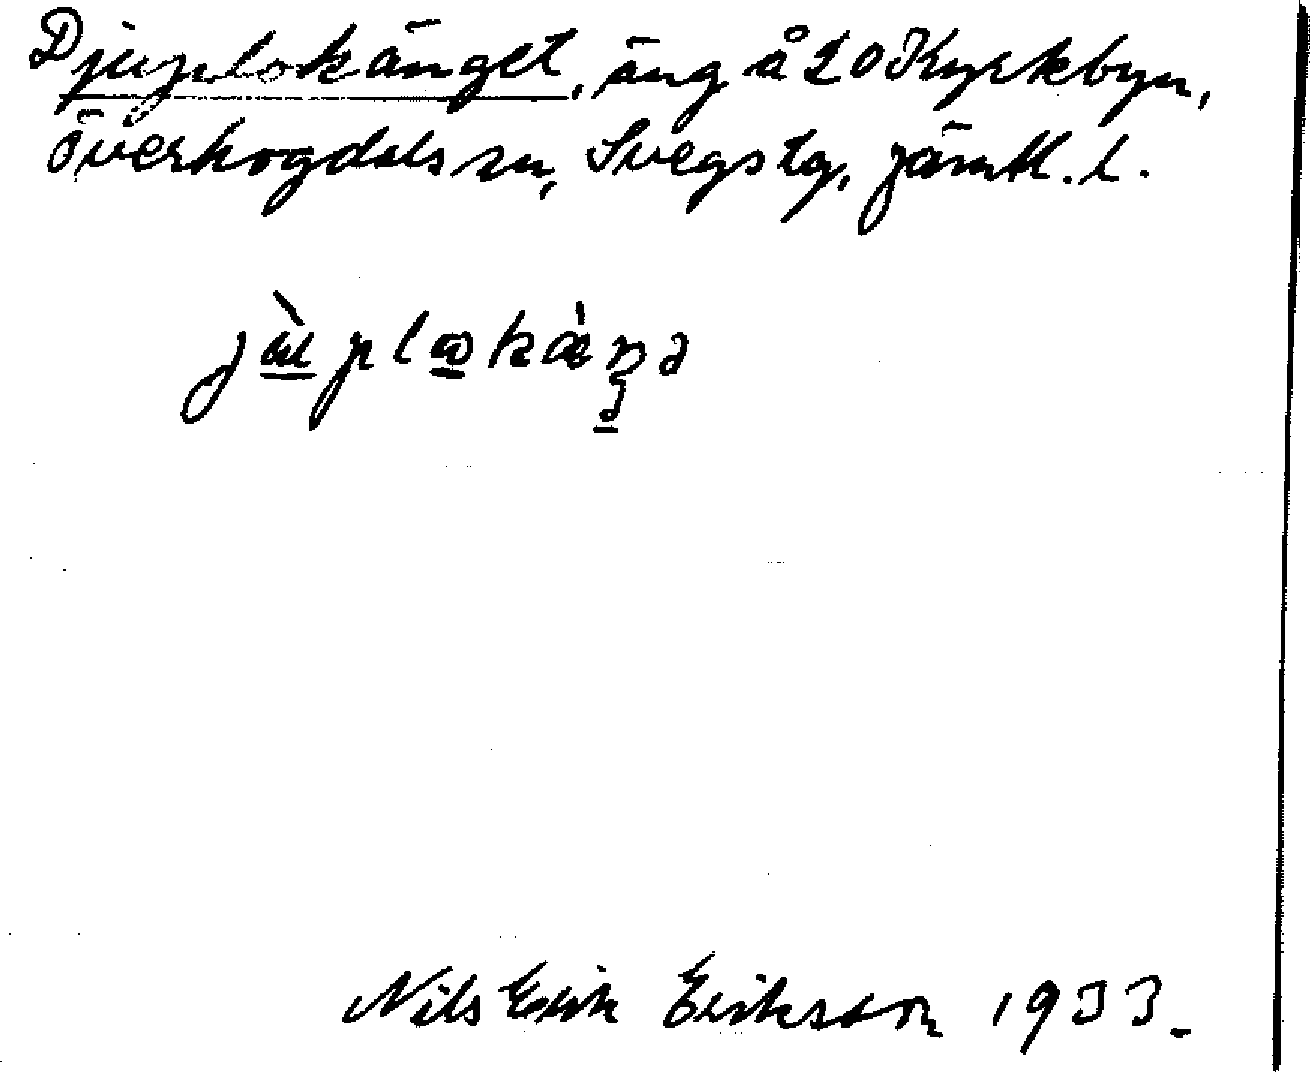 Djuplokänget, äng å 20 Kyrkbyn,
Överhogdals sn, Svegs tg, Jämtl. l.
Nils Erik Erikson 1933.